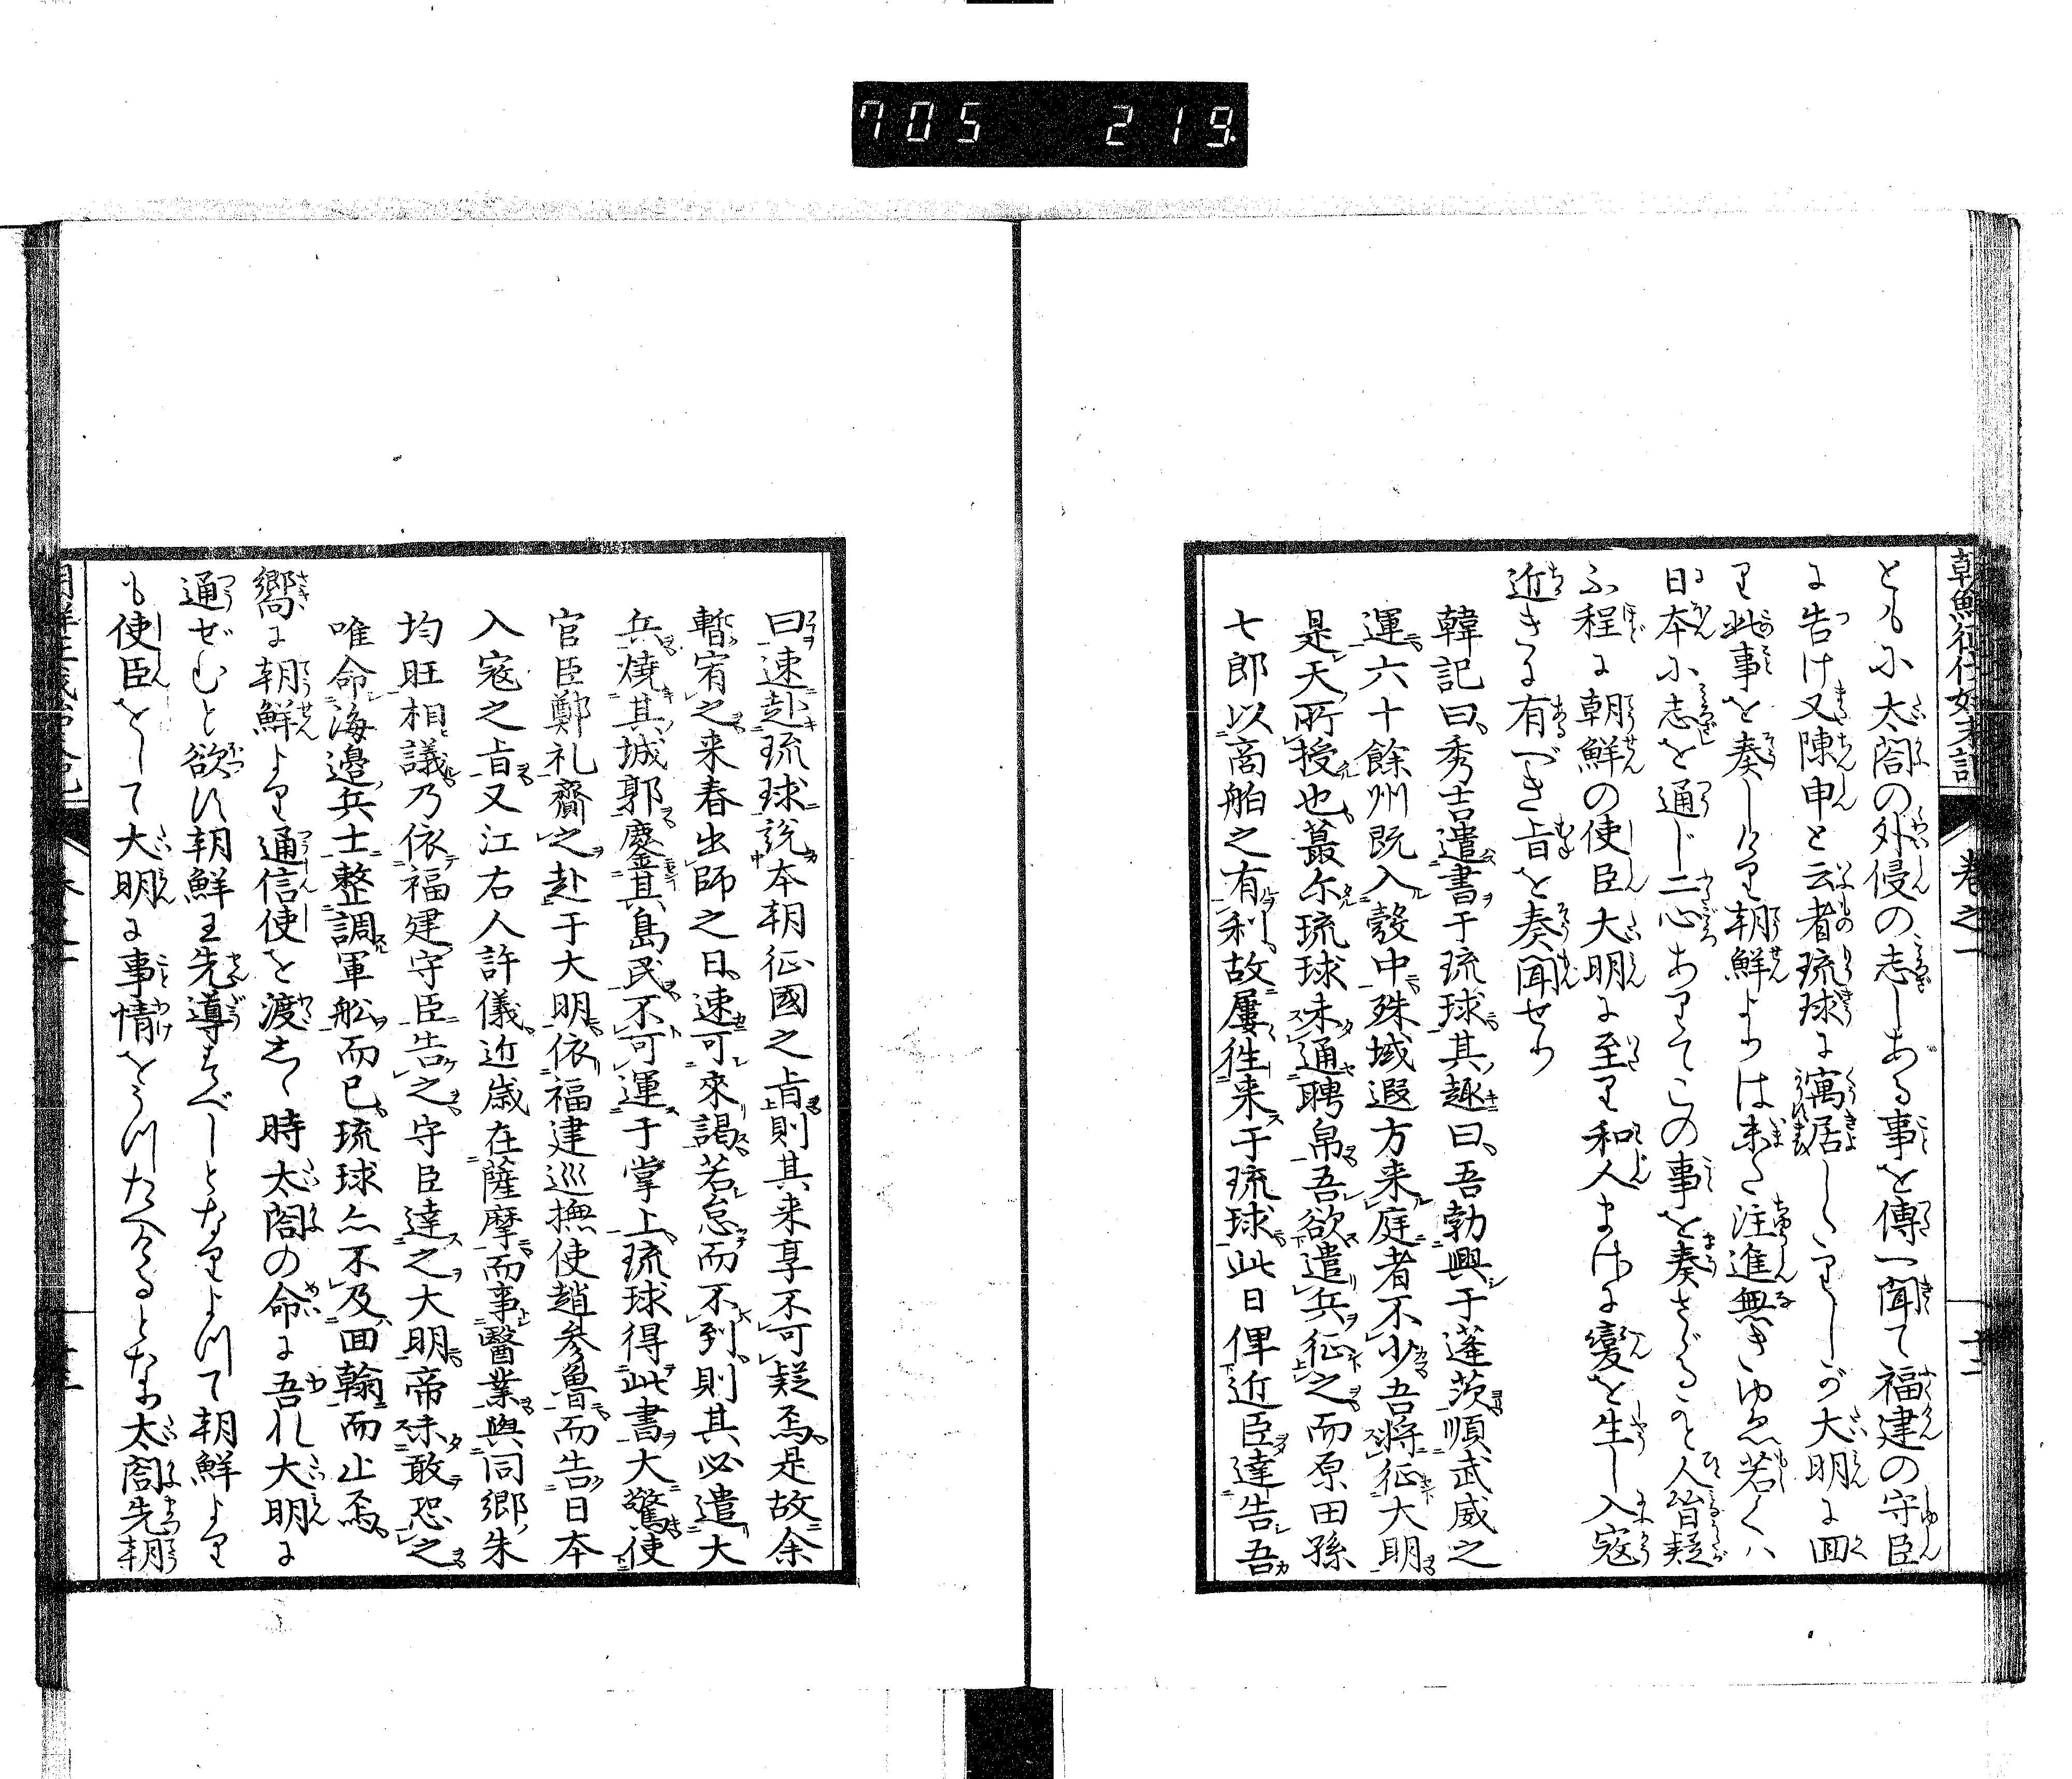 705 219
朝鮮征伐始末記 巻之一 十二
ともに太閤の外侵の志しある事を傳へ聞て福建の守臣
に告け又陳申と云者琉球に寓居しゝりしが大明に囬
り此事を奏しけり朝鮮よりは未だ注進無きゆゑ若くハ
日本に志を通じ二心ありてこの事を奏さゞるかと人皆疑
ふ程に朝鮮の使臣大明に至り和人まさに變を生し入寇
近きに有べき旨を奏聞せり
韓記曰秀吉遣書于琉球其趣曰吾勃興于蓬茨順武威之
運六十餘州既入彀中殊域遐方来庭者不少吾將征大明
是天所授也蕞尓琉球未通聘帛吾欲遣兵征之而原田孫
七郎以商舶之有利故屢徃来于琉球此日俾近臣達告吾
曰速赴琉球說本朝征國之旨則其来享不可疑焉是故余
暫宥之来春出師之日速可來謁若怠而不到則其必遣大
兵燒其城郭鏖其島民不可運于掌上琉球得此書大驚使
官臣鄭礼齎之赴于大明依福建巡撫使趙参魯而告日本
入寇之旨又江右人許儀近歳在薩摩而事醫業與同郷朱
均旺相議乃依福建守臣告之守臣達之大明帝未敢恐之
唯命海邉兵士整調軍舩而已琉球亦不及囬翰而止焉
嚮に朝鮮より通信使を渡しゝ時太閤の命に吾れ大明に
通ぜむと欲す朝鮮王先導すべしとなりよつて朝鮮より
も使臣をして大明に事情をうつたへけるとなり太閤先朝